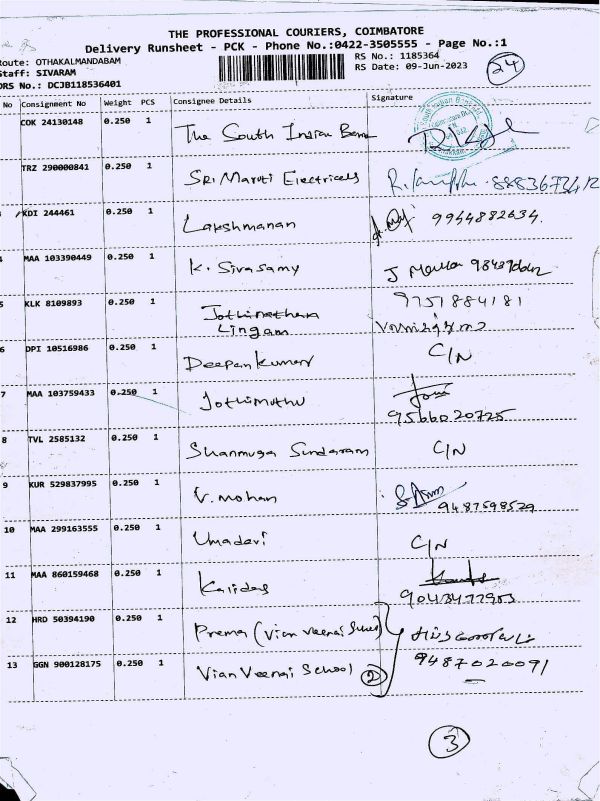 THE PROFESSIONAL COURIERS, COIMBATORE
Delivery Runsheet - PCK - Phone No.:0422-3505555 - Page No.:1
Route: OTHAKALMANDABAM RS No.: 1185364
Staff: SIVARAM RS Date: 09-Jun-2023 24
DRS No.: DCJB118536401
No Consignment No Weight PCS Consignee Details Signature
COK 24130148 0.250 1 The South Indian Bank
TRZ 290000841 0.250 1 Sri Maruti Electricals
KDI 244461 0.250 1 Lakshmanan 9944882634
MAA 103390449 0.250 1 K. Sivasamy
5 KLK 8109893 0.250 1 Lingam 9751884181
6 DPI 10516986 0.250 1 Deepan kumar C/N
7 MAA 103759433 0.250 1 Jothimuthu 9566020725
8 TVL 2585132 0.250 1 Shanmuga Sundaram C/N
9 KUR 529837995 0.250 1 V. mohan 9487598529
10 MAA 299163555 0.250 1 Umadevi C/N
11 MAA 860159468 0.250 1 Kalidas
12 HRD 50394190 0.250 1 Prema (Vian Veenai School
13 GGN 900128175 0.250 1 Vian Veenai School 2 9487020091
3